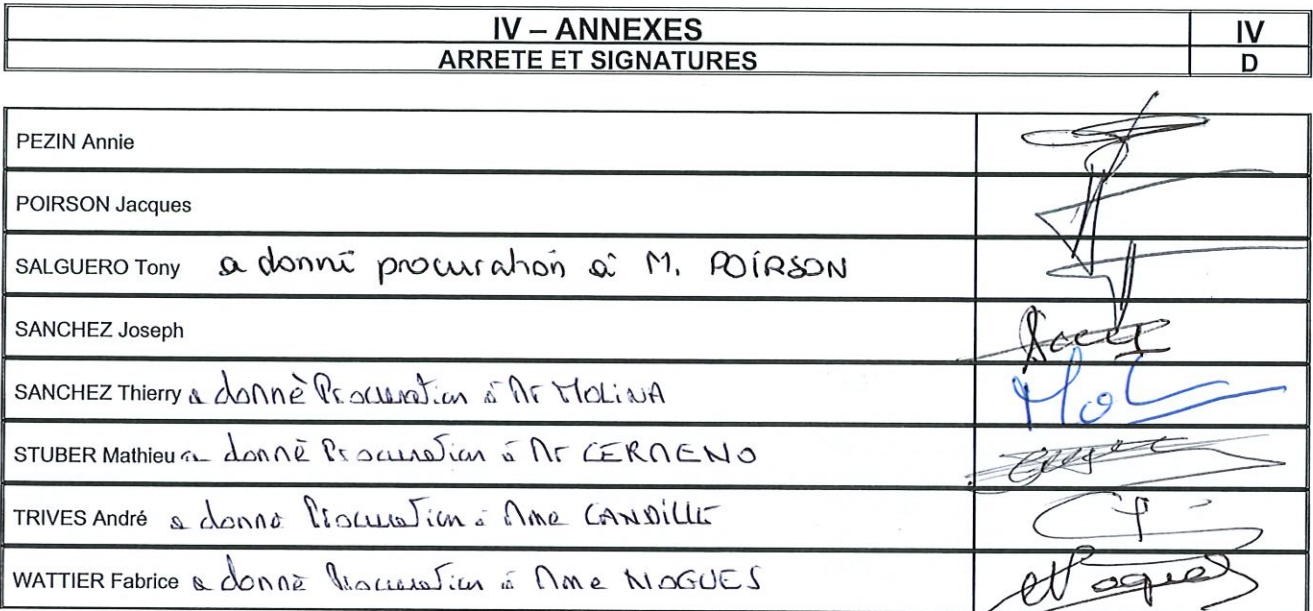 IV – ANNEXES IV
ARRETE ET SIGNATURES D
PEZIN Annie
POIRSON Jacques
SALGUERO Tony a donné procuration à M. POIRSON
SANCHEZ Joseph
SANCHEZ Thierry a donné Procuration à Mr MOLINA
STUBER Mathieu a donné Procuration à Mr CERMENO
TRIVES André a donné Procuration à Mme CANDILLE
WATTIER Fabrice a donné Procuration à Mme NOGUES